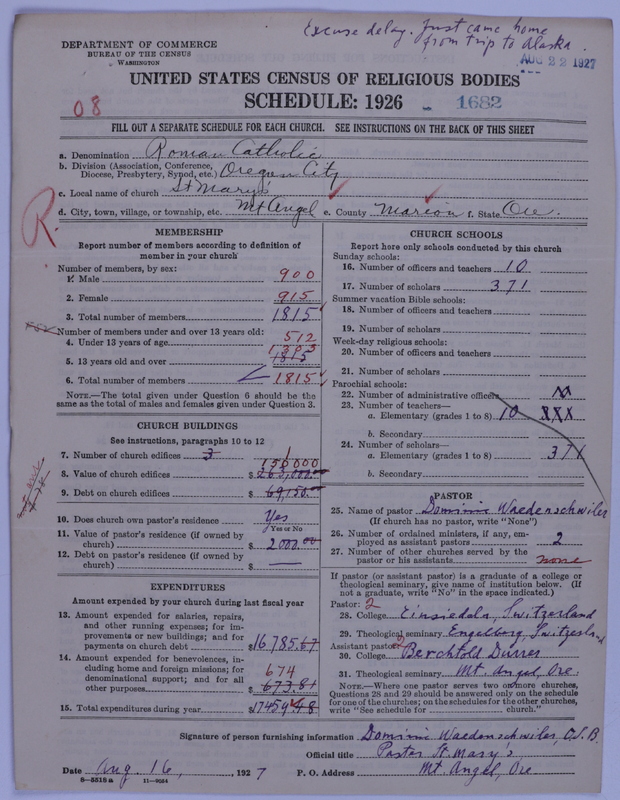 Excuse delay. Just came home
from trip to Alaska.
AUG 22 1927
DEPARTMENT OF COMMERCE
BUREAU OF THE CENSUS
WASHINGTON
UNITED STATES CENSUS OF RELIGIOUS BODIES
SCHEDULE: 1926
08
1682
FILL OUT A SEPARATE SCHEDULE FOR EACH CHURCH. SEE INSTRUCTIONS ON THE BACK OF THIS SHEET
a. Denomination Roman Catholic
b. Division (Association, Conference,
Diocese, Presbytery, Synod, etc.) Oregon City
c. Local name of church St Mary's
d. City, town, village, or township, etc. Mt Angel e. County Marion f. State Ore.
R
MEMBERSHIP
Report number of members according to definition of
member in your church
Number of members, by sex:
1. Male 900
2. Female 915
3. Total number of members 1815
Number of members under and over 13 years old:
4. Under 13 years of age 512
1303
5. 13 years old and over 1815
6. Total number of members 1815
NOTE.—The total given under Question 6 should be
the same as the total of males and females given under Question 3.
CHURCH BUILDINGS
See instructions, paragraphs 10 to 12
7. Number of church edifices 3 1
150000
8. Value of church edifices $ 263,000.00
9. Debt on church edifices $ 69,150.00
10. Does church own pastor's residence Yes
Yes or No
11. Value of pastor's residence (if owned by
church) $ 2000.00
12. Debt on pastor's residence (if owned by
church) $ —
EXPENDITURES
Amount expended by your church during last fiscal year
13. Amount expended for salaries, repairs,
and other running expenses; for im-
provements or new buildings; and for
payments on church debt $ 16785.67
14. Amount expended for benevolences, in-
cluding home and foreign missions; for
denominational support; and for all
other purposes 674
$ 673.81
15. Total expenditures during year $ 17459.48
CHURCH SCHOOLS
Report here only schools conducted by this church
Sunday schools:
16. Number of officers and teachers 10
17. Number of scholars 371
Summer vacation Bible schools:
18. Number of officers and teachers
19. Number of scholars
Week-day religious schools:
20. Number of officers and teachers
21. Number of scholars
Parochial schools:
22. Number of administrative officers
23. Number of teachers—
a. Elementary (grades 1 to 8) 10 XXX
b. Secondary
24. Number of scholars—
a. Elementary (grades 1 to 8) 371
b. Secondary
PASTOR
25. Name of pastor Dominic Waedenschwiler
(If church has no pastor, write "None")
26. Number of ordained ministers, if any, em-
ployed as assistant pastors 2
27. Number of other churches served by the
pastor or his assistants none
If pastor (or assistant pastor) is a graduate of a college or
theological seminary, give name of institution below. (If
not a graduate, write "No" in the space indicated.)
Pastor: 2
28. College Einsiedeln, Switzerland
29. Theological seminary Engelberg, Switzerland
Assistant pastor: 2
30. College Berchtold Durrer
31. Theological seminary Mt. Angel, Ore.
NOTE.—Where one pastor serves two or more churches,
Questions 28 and 29 should be answered only on the schedule
for one of the churches; on the schedules for the other churches,
write "See schedule for church."
Signature of person furnishing information Dominic Waedenschwiler, O.S.B.
Official title Pastor St. Mary's
Date Aug. 16, 1927 P. O. Address Mt. Angel, Ore
8—5518a 11—9054